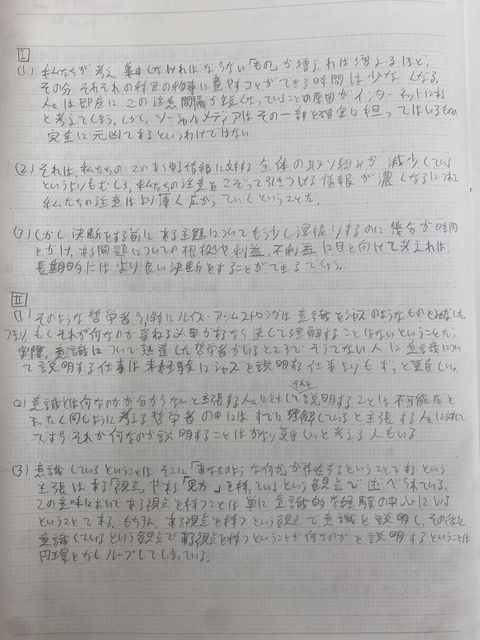 I
(1) 私たちが考え、集中しなければならない「もの」が増えれば増えるほど、
その分それぞれの特定の物事に費やすことができる時間は少なくなる。
人々は即座にこの注意間隔が短くなっていることの原因がインターネットにある
と考えてしまう。しかし、ソーシャルメディアはその一部を確実に担ってはいるものの
完全に元凶であるというわけではない
(2) それは、私たちの この 情報に対する 全体の 取り組みが 減少している
というよりもむしろ、私たちの注意を こぞって引きつける 情報が 濃くなるにつれ
私たちの注意はより薄く広がっていくということだ。
(3) しかし決断をする前にある主題についてもう少し深掘りするのに幾分か時間
をかけ、ある問題についての根拠や利益、不利益に目を向けて考えれば、
長期的にはより良い決断をすることができるでしょう。
II
(1) そのような哲学者の 特にルイス・アームストロングは意識をジャズのようなものと
つまり、もしそれが何なのか尋ねる必要があるなら決して理解することはないということだ。
実際、意識について熟達した哲学者がいるところで そうでない人に意識について
説明する仕事は未経験者にジャズを説明する仕事よりもずっと難しい。
(2) 意識とは何なのかが分からないと主張する人々に対してそれを説明することは不可能だと
まったく同じように考える哲学者の中には すでに理解していると主張する人々に対して
ですらそれが何なのか説明することはかなり難しいと考える人もいる
(3) 意識しているということは、そこに「あなたのような何か」が存在するということであるという
主張は ある「視点」やある「見方」を持っているという観点で述べられている。
この意味において ある視点を持つことは 単に意識的な経験の中心にいる
ということである。もちろん、ある視点を持つという観点で意識を説明し、その後に
意識しているという観点で ある視点を持つということが何なのかを説明するということは
円環をなしループしてしまっている。